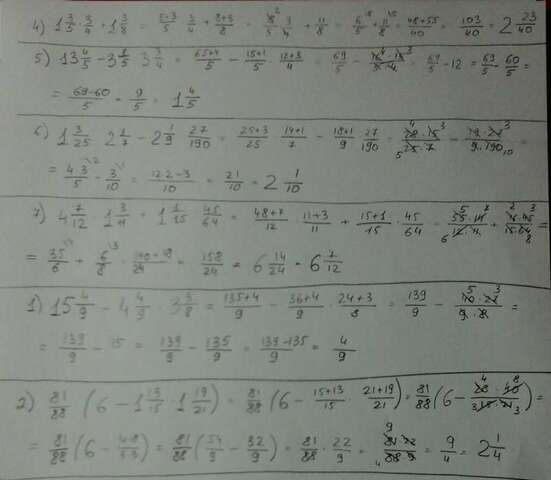 4) 1 3/5 · 3/4 + 1 3/8 = (5+3)/5 · 3/4 + (8+3)/8 = 8/5 · 3/4 + 11/8 = 6/5 + 11/8 = (48+55)/40 = 103/40 = 2 23/40
5) 13 4/5 - 3 1/5 · 3 3/4 = (65+4)/5 - (15+1)/5 · (12+3)/4 = 69/5 - (16·15)/(5·4) = 69/5 - 12 = 69/5 - 60/5 =
= (69-60)/5 = 9/5 = 1 4/5
6) 1 3/25 · 2 1/7 - 2 1/9 · 27/190 = (25+3)/25 · (14+1)/7 - (18+1)/9 · 27/190 = (28·15)/(25·7) - (19·27)/(9·190) =
= (4·3)/5 - 3/10 = (12·2-3)/10 = 21/10 = 2 1/10
7) 4 7/12 · 1 3/11 + 1 1/15 · 45/64 = (48+7)/12 · (11+3)/11 + (15+1)/15 · 45/64 = (55·14)/(12·11) + (16·45)/(15·64) =
= 35/6 + 6/8 = (140+18)/24 = 158/24 = 6 14/24 = 6 7/12
1) 15 4/9 - 4 4/9 · 3 3/8 = (135+4)/9 - (36+4)/9 · (24+3)/8 = 139/9 - (40·27)/(9·8) =
= 139/9 - 15 = 139/9 - 135/9 = (139-135)/9 = 4/9
2) 81/88 (6 - 1 13/15 · 1 19/21) = 81/88 (6 - (15+13)/15 · (21+19)/21) = 81/88 (6 - (28·40)/(15·21)) =
= 81/88 (6 - (4·8)/(3·3)) = 81/88 (54/9 - 32/9) = 81/88 · 22/9 = (81·22)/(88·9) = 9/4 = 2 1/4